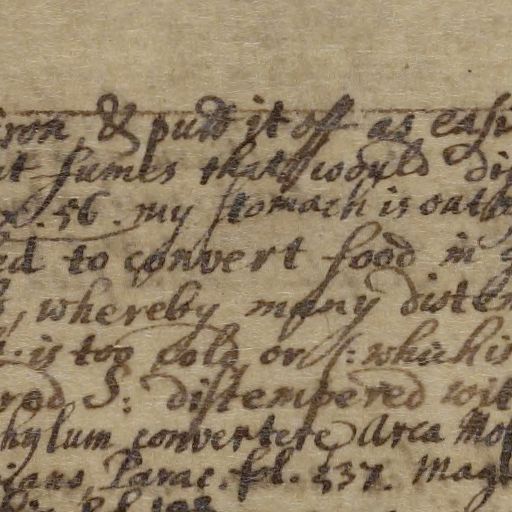 iron, & putt it off as easi
at fumes that would dis
56. my stomach is outt
ed to convert food in
, whereby many distem
t. is too cold or /: which is
red S: distempered wit
hylum convertere Arca Mos
ians Parac. fol. 537. Mag